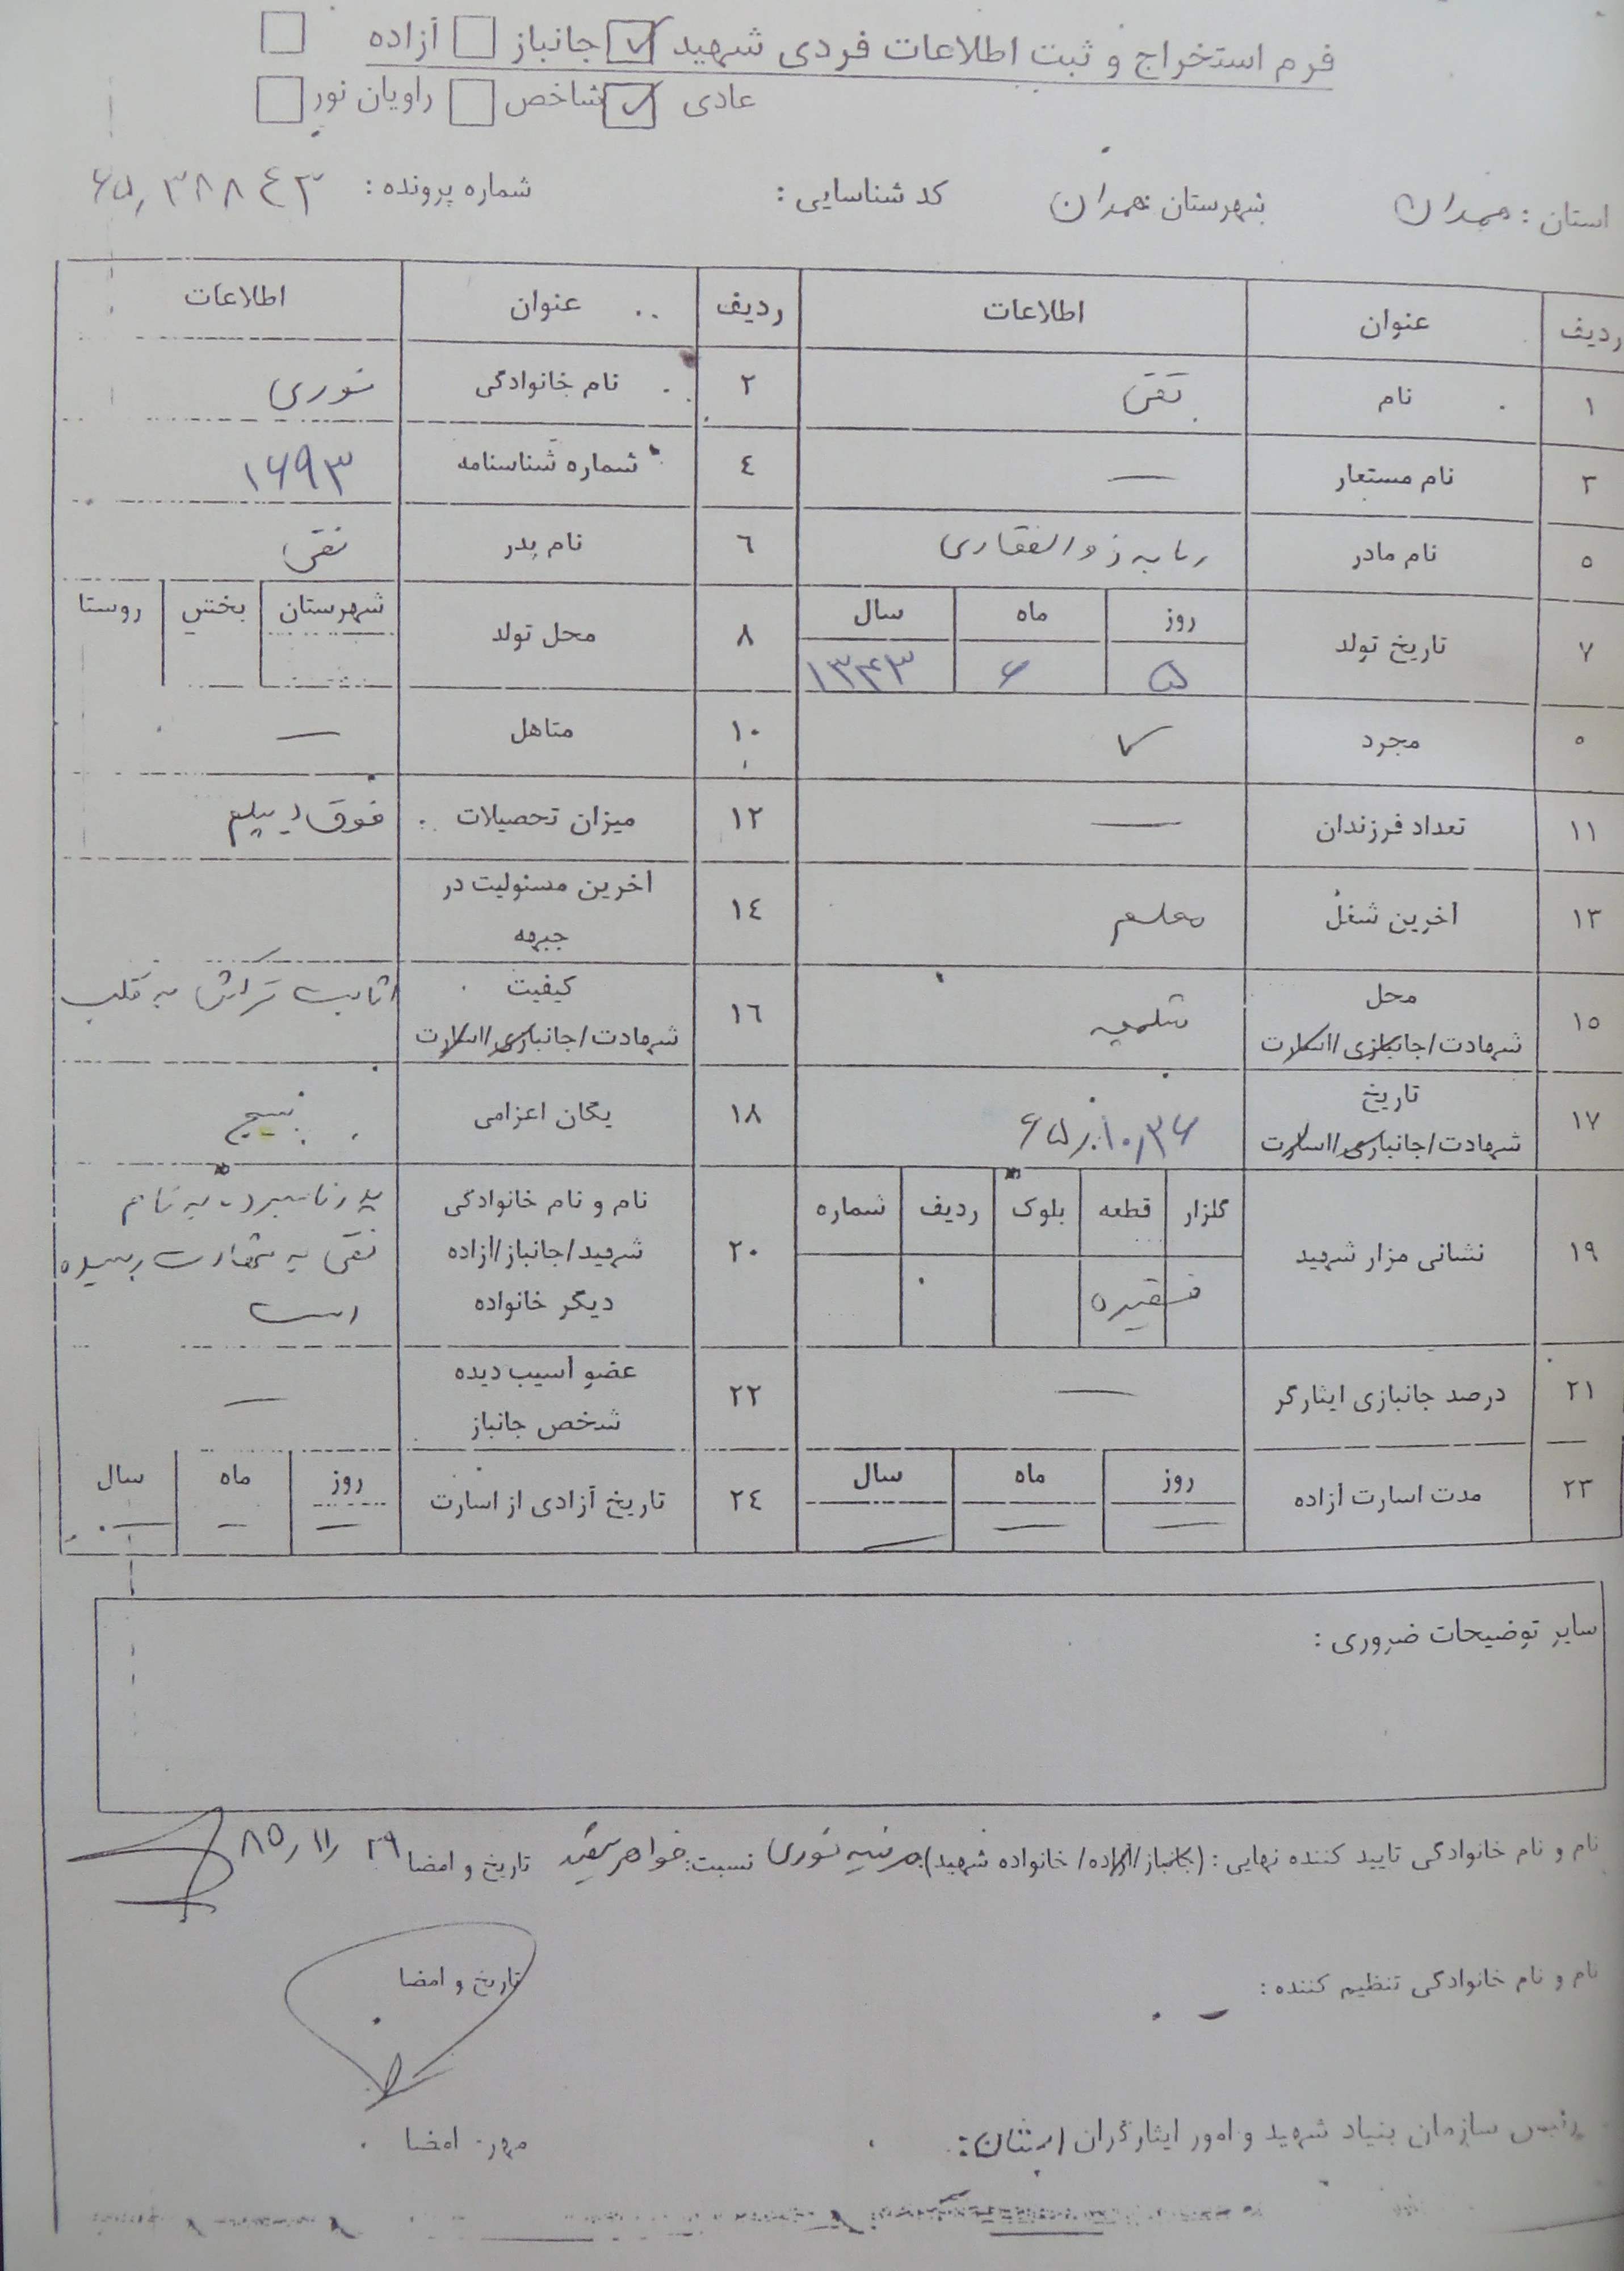 فرم استخراج و ثبت اطلاعات فردی شهید ✓ جانباز □ آزاده □
عادی ✓ شاخص □ راویان نور □
استان : همدان شهرستان : همدان کد شناسایی : شماره پرونده : ۶۵,۳۸۸۴۳
ردیف عنوان اطلاعات ردیف عنوان اطلاعات
۱ نام تقی ۲ نام خانوادگی نوری
۳ نام مستعار — ٤ شماره شناسنامه ۱۶۹۳
٥ نام مادر ربابه ذوالفقاری ٦ نام پدر نقی
۷ تاریخ تولد روز ماه سال ۸ محل تولد شهرستان بخش روستا
۵ ۶ ۱۳۴۳
٥ مجرد ✓ ۱۰ متاهل —
۱۱ تعداد فرزندان — ۱۲ میزان تحصیلات فوق دیپلم
۱۳ آخرین شغل معلم ۱٤ آخرین مسئولیت در جبهه
۱٥ محل شهادت/جانبازی/اسارت شلمچه ۱٦ کیفیت شهادت/جانبازی/اسارت اثابت ترکش به قلب
۱۷ تاریخ شهادت/جانبازی/اسارت ۶۵,۱۰,۲۶ ۱۸ یگان اعزامی بسیج
۱۹ نشانی مزار شهید گلزار قطعه بلوک ردیف شماره
۲۰ نام و نام خانوادگی شهید/جانباز/آزاده دیگر خانواده پدر نامبرده به نام
نقی به شهادت رسیده
است
۲۱ درصد جانبازی ایثارگر — ۲۲ عضو آسیب دیده شخص جانباز —
۲۳ مدت اسارت آزاده روز ماه سال ۲٤ تاریخ آزادی از اسارت روز ماه سال
— — — — — —
سایر توضیحات ضروری :
نام و نام خانوادگی تایید کننده نهایی : (جانباز/آزاده/ خانواده شهید) مرضیه نوری نسبت: خواهر شهید تاریخ و امضا ۲۹ /۱۱/ ۸۵
نام و نام خانوادگی تنظیم کننده : تاریخ و امضا
رئیس سازمان بنیاد شهید و امور ایثارگران استان: مهر امضا